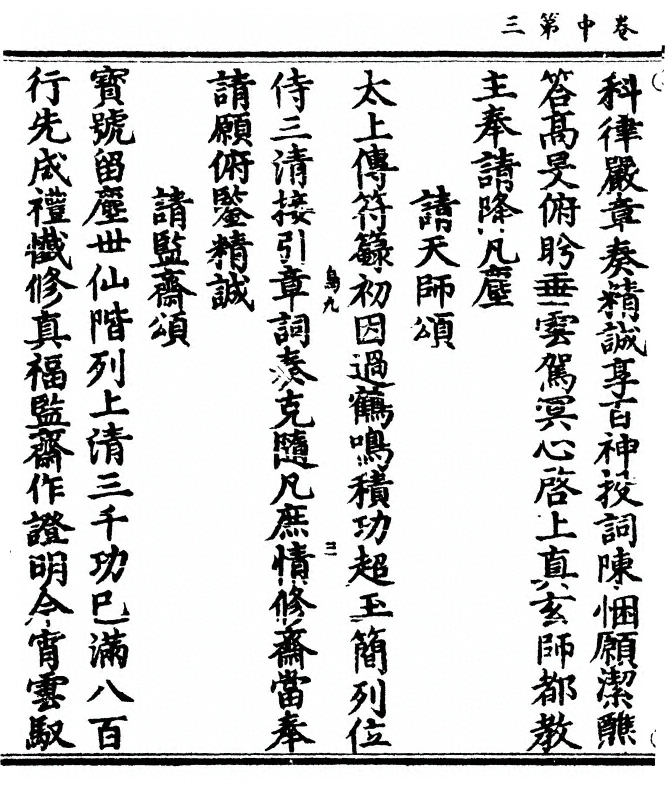 卷中第三
科律嚴章奏精誠享百神投詞陳悃願潔醮
答高旻俯盻垂雲駕冥心啓上真玄師都教
主奉請降凡塵
請天師頌
太上傳符籙初因過鶴鳴積功超玉簡列位
鳥九
三
侍三清接引章詞奏克隨凡庶情修齋當奉
請願俯鑒精誠
請監齋頌
寳號留塵世仙階列上清三千功巳滿八百
行先成禮懴修真福監齋作證明今宵雲馭